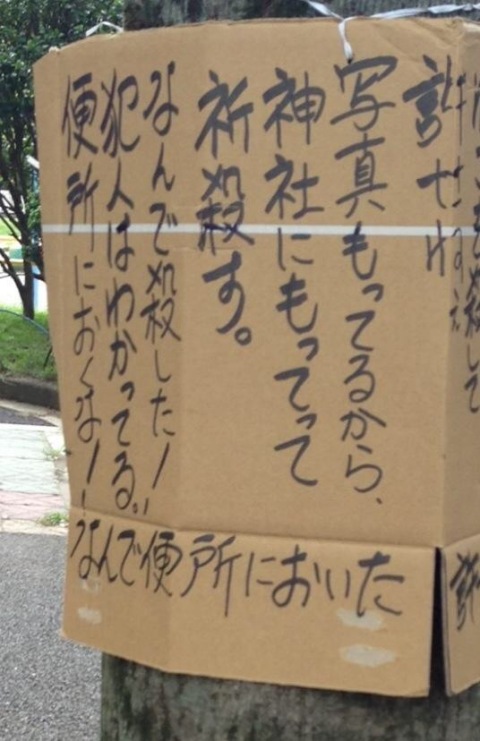 を殺して
許せねえ
許せね
写真もってるから、
神社にもってって
祈殺す。
なんで殺した!
犯人はわかってる。
便所におくな!!
なんで便所においた
許